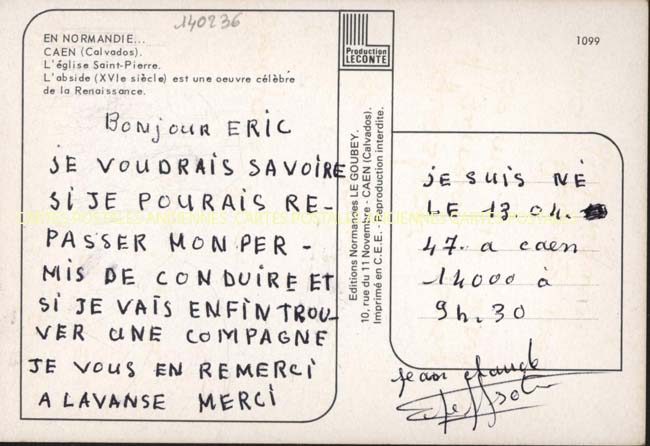 140236
EN NORMANDIE...
CAEN (Calvados).
L'église Saint-Pierre.
L'abside (XVIe siècle) est une oeuvre célèbre
de la Renaissance.
Production
LECONTE
1099
BONJOUR ERIC
JE VOUDRAIS SAVOIRE
SI JE POURAIS RE-
PASSER MON PER-
MIS DE CONDUIRE ET
SI JE VAIS ENFIN TROU-
VER UNE COMPAGNE
JE VOUS EN REMERCI
A LAVANSE MERCI
Editions Normandes LE GOUBEY.
10, rue du 11 Novembre - CAEN (Calvados).
Imprimé en C.E.E. - Reproduction interdite.
JE SUIS NÉ
LE 13.04.
47. a caen
14000 à
9h.30
jean claude
CARTES POSTALES ANCIENNES CARTES POSTALES ANCIENNES CARTES POSTALES ANCIENNES